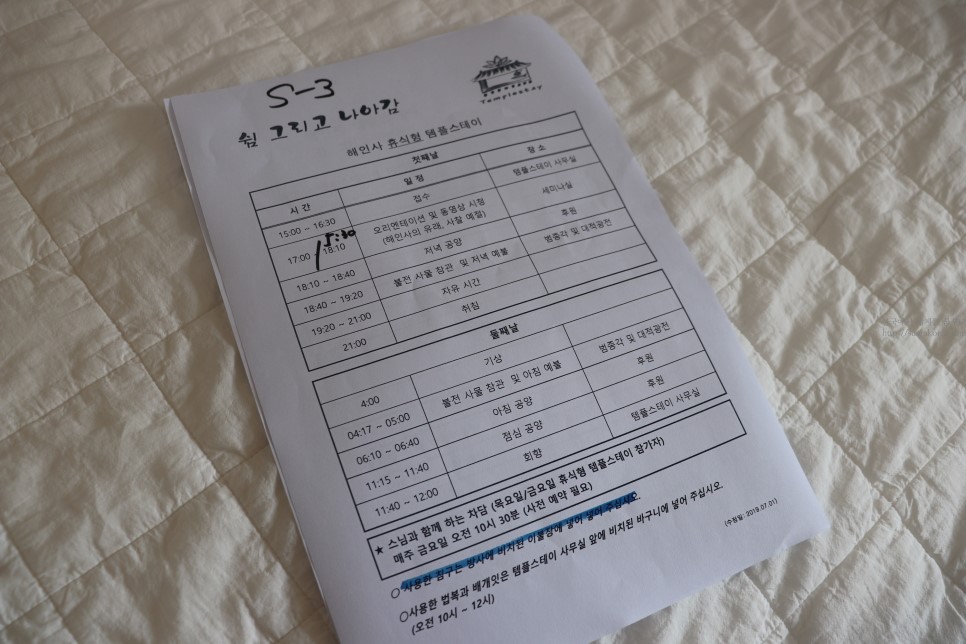 S-3
Templestay
쉼 그리고 나아감
해인사 휴식형 템플스테이
첫째날
시 간 일 정 장 소
15:00 ~ 16:30 접수 템플스테이 사무실
17:00 18:10 오리엔테이션 및 동영상 시청 세미나실
15:30
(해인사의 유래, 사찰 예절)
18:10 ~ 18:40 저녁 공양 후원
18:40 ~ 19:20 불전 사물 참관 및 저녁 예불 범종각 및 대적광전
19:20 ~ 21:00 자유 시간
21:00 취침
둘째날
4:00 기상
04:17 ~ 05:00 불전 사물 참관 및 아침 예불 범종각 및 대적광전
06:10 ~ 06:40 아침 공양 후원
11:15 ~ 11:40 점심 공양 후원
11:40 ~ 12:00 회향 템플스테이 사무실
★ 스님과 함께 하는 차담 (목요일/금요일 휴식형 템플스테이 참가자)
매주 금요일 오전 10시 30분 (사전 예약 필요)
○ 사용한 침구는 방사에 비치된 이불장에 넣어 넣어 주십시오.
○사용한 법복과 배개잇은 템플스테이 사무실 앞에 비치된 바구니에 넣어 주십시오.
(오전 10시 ~ 12시)
(수정일: 2019.07.01)